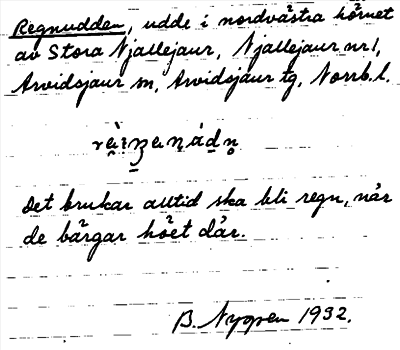 Regnudden, udde i nordvästra hörnet
av Stora Njallejaur, Njallejaur nr 1,
Arvidsjaur sn, Arvidsjaur tg, Norrb. l.
Det brukar alltid ska bli regn, når
de bärgar höet där.
B. Nygren 1932.